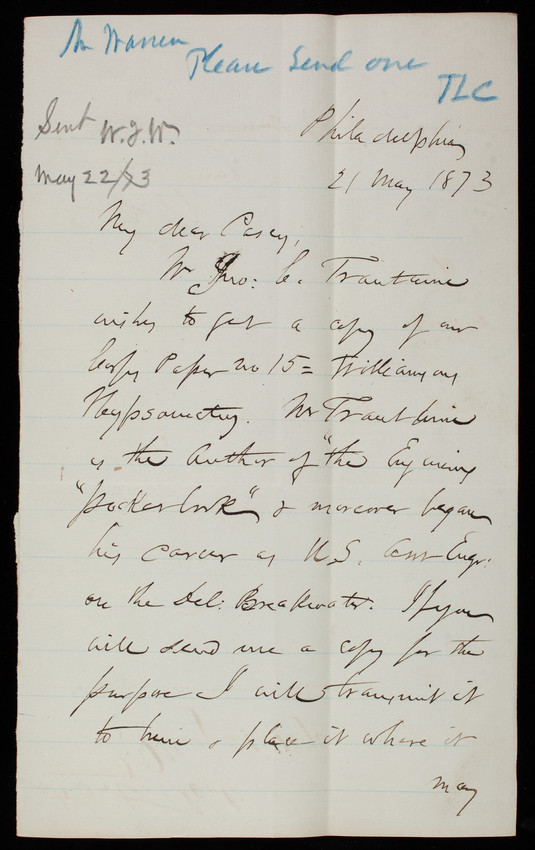 Mr Warren
Please send one
TLC
Sent W.J.W.
May 22/73
Philadelphia
21 May 1873
My dear Casey,
Mr Jno: C. Trautwine
wishes to get a copy of our
Corps Paper no 15 = Williamson
Hypsometry. Mr Trautwine
is the author of "the Engineers
"pocket book" & moreover began
his career as U.S. Asst Engr.
on the Del: Breakwater. If you
will send me a copy for the
purpose I will transmit it
to him & place it where it
may